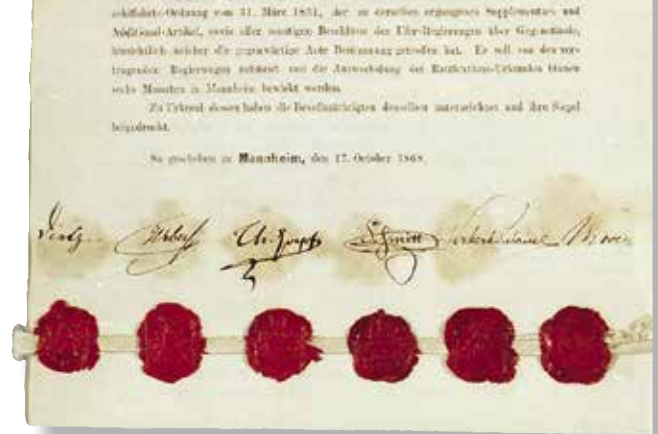 schifffahrts-Ordnung vom 31. März 1831, der zu derselben ergangenen Supplementar- und
Additional-Artikel, sowie aller sonstigen Beschlüsse der Ufer-Regierungen über Gegenstände,
hinsichtlich welcher die gegenwärtige Acte Bestimmung getroffen hat. Es soll von den ver-
tragenden Regierungen ratificirt und die Auswechslung der Ratifications-Urkunden binnen
sechs Monaten in Mannheim bewirkt werden.
Zu Urkund dessen haben die Bevollmächtigten dieselben unterzeichnet und ihre Siegel
beigedruckt.
So geschehen zu Mannheim, den 17. October 1868.
Schmitt